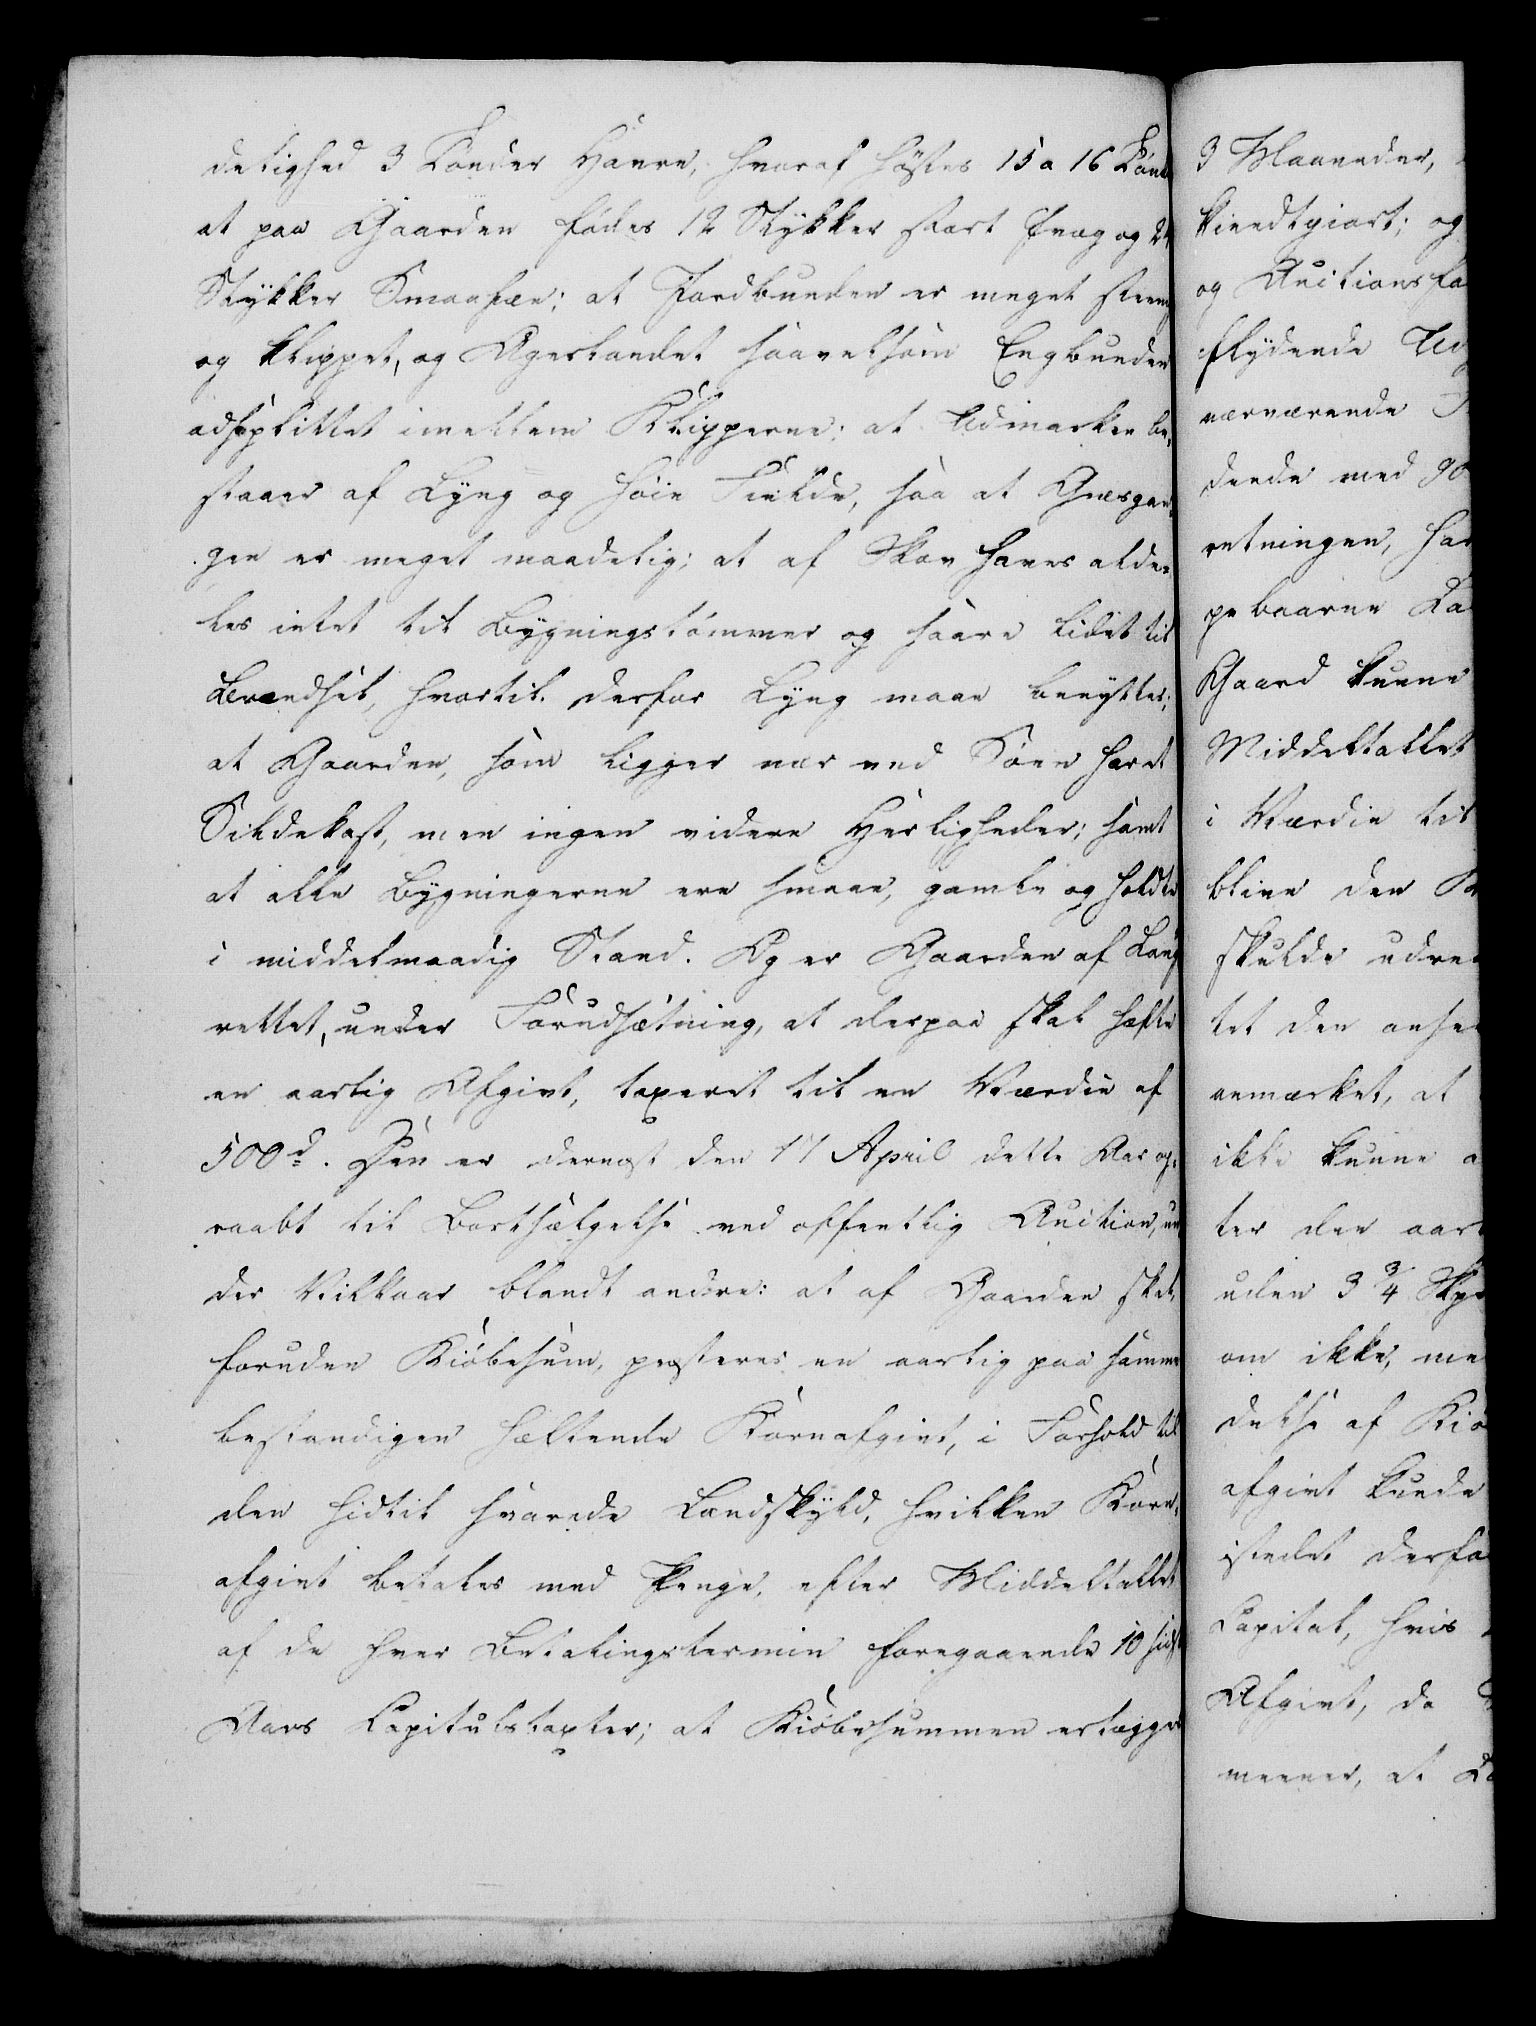 delighed 3 Tønder Havre, hvoraf høstes 15 a 16 Tønd
at paa Gaarden fødes 12 Stykker stort Qvæg og 24
Stykker Smaafæe; at Jordbunden er meget steen
og klippet, og Agerlandet saavelsom Engbunden
adsplittet imellem Klipperne; at Udmarken be,
staaer af Lyng og høie Fielde, saa at Græsgan,
gen er meget maadelig; at af Skov haves alde=
les intet til Bygningstømmer og saare lidet til
Brændsel, hvortil derfor Lyng maae benyttes;
at Gaarden, som ligger nær ved Søen har et
Sildekast, men ingen videre Herligheder; samt
at alle Bygningerne ere smaae, gamle og holdte
i middelmaadig Stand. Og er Gaarden af Laug
rettet, under Forudsætning, at derpaa skal hæfte
en aarlig Afgivt, taxeret til en Værdie af
500 d. Den er dernæst den 17 April dette Aar op,
raabt til Bortsælgelse ved offentlig Auction, un
der Vilkaar blandt andre: at af Gaarden skal,
foruden Kiøbesum, præsteres en aarlig paa samme
bestandigen hæftende Kornafgivt, i Forhold til
den hidtil svarede Landskyld, hvilken Korn,
afgivt betales med Penge, efter Middeltallet
af de hver Betalingstermin foregaaende 10 sidst
Aars Capitulstaxter; at Kiøbesummen erlægges
3 Maaneder,
kiendtgiort; og
og Auctions
flydende
nærværende
dende med 90
retningen, har
pebaarne
Gaard kunne
Middeltallet
i Værdie til
blive den
skulde udre
tet den anse
anmærket, at
ikke kunne
ter den aar
uden 3 3/4
om ikke, me
delse af Kiø
afgivt kunde
istedet derfo
Capital, hvis
Afgivt, da
meener, at